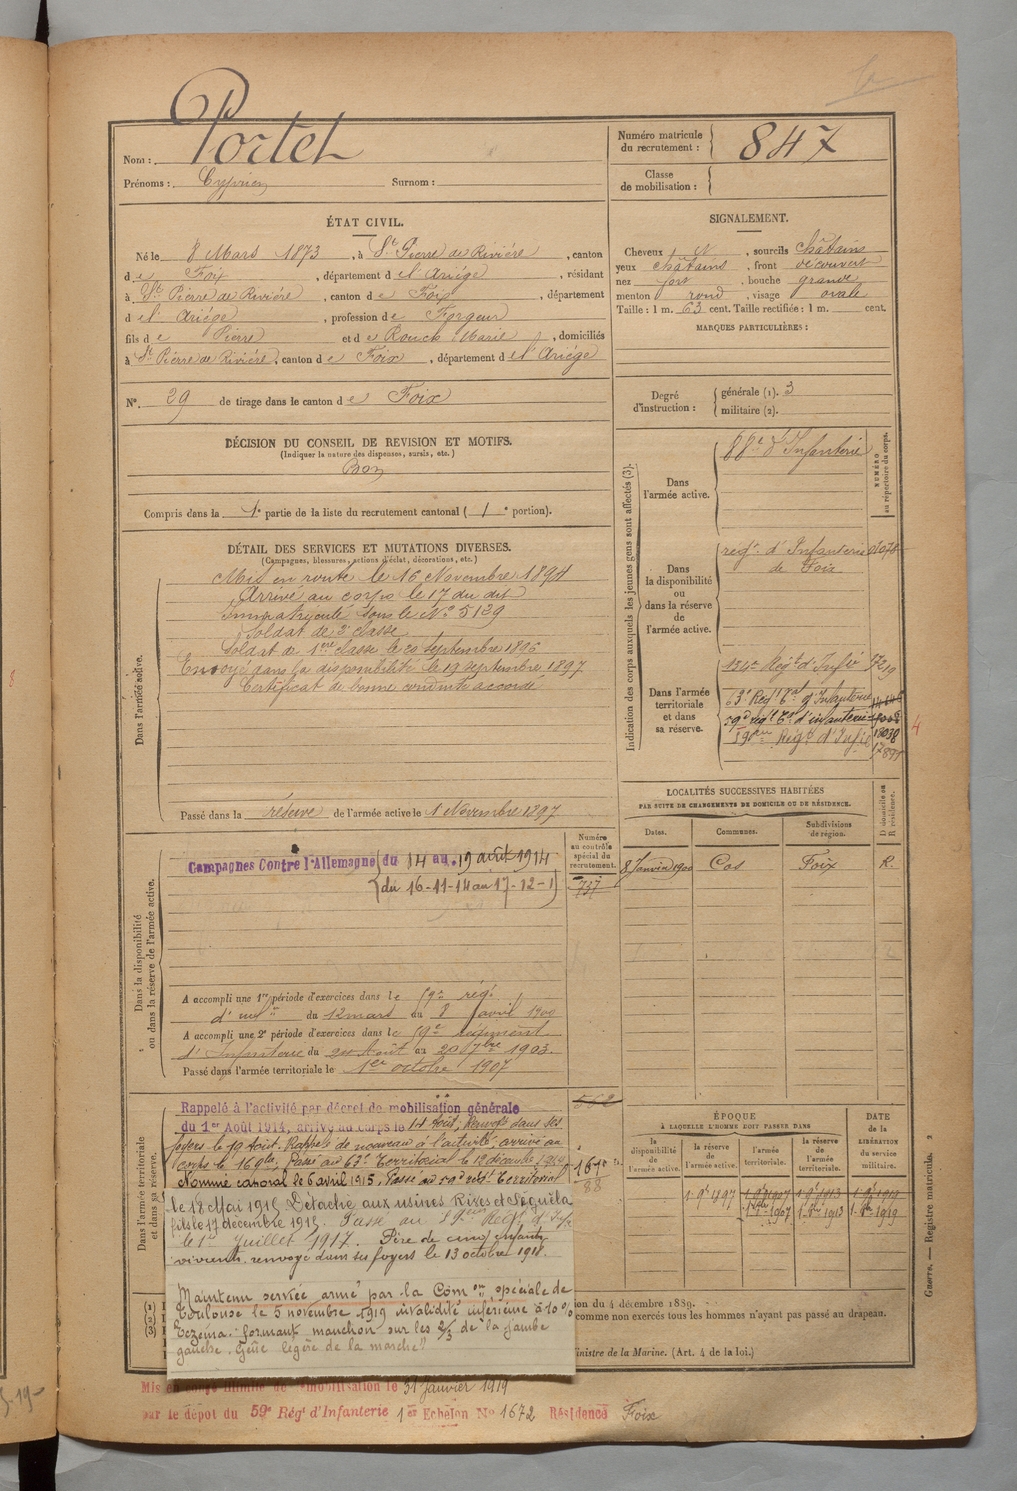 Nom : Portet
Prénoms : Cyprien Surnom :
Numéro matricule du recrutement : 847
Classe de mobilisation :
ÉTAT CIVIL.
Né le 8 Mars 1873, à St Pierre de Rivière, canton
de Foix, département de l'Ariége, résidant
à St Pierre de Rivière, canton de Foix, département
de l'Ariége, profession de Forgeur
fils de Pierre et de Rouch Marie, domiciliés
à St Pierre de Rivière, canton de Foix, département de l'Ariége
N° 29 de tirage dans le canton de Foix
SIGNALEMENT.
Cheveux N, sourcils châtains
yeux châtains, front découvert
nez fort, bouche grande
menton rond, visage ovale
Taille : 1 m. 63 cent. Taille rectifiée : 1 m. cent.
MARQUES PARTICULIÈRES :
Degré d'instruction : générale (1). 3
militaire (2).
DÉCISION DU CONSEIL DE REVISION ET MOTIFS.
(Indiquer la nature des dispenses, sursis, etc.)
Bon
Compris dans la 1e partie de la liste du recrutement cantonal (1e portion).
DÉTAIL DES SERVICES ET MUTATIONS DIVERSES.
(Campagnes, blessures, actions d'éclat, décorations, etc.)
Dans l'armée active.
Mis en route le 16 Novembre 1894
Arrivé au corps le 17 du dit
Immatriculé sous le No 5129
Soldat de 2e classe
Soldat de 1ere classe le 20 septembre 1896
Envoyé dans la disponibilité le 19 septembre 1897
Certificat de bonne conduite accordé
Passé dans la réserve de l'armée active le 1 Novembre 1897
Indication des corps auxquels les jeunes gens sont affectés (3).
NUMÉRO au répertoire du corps.
Dans l'armée active.
88e d'Infanterie
Dans la disponibilité ou dans la réserve de l'armée active.
régt d'Infanterie
de Foix
Dans l'armée territoriale et dans sa réserve.
134e Régt d'Infie
63e Regt Tal d'Infanterie
59e regt Tal d'infanterie
59eme Régt d'Infie
LOCALITÉS SUCCESSIVES HABITÉES
PAR SUITE DE CHANGEMENTS DE DOMICILE OU DE RÉSIDENCE.
Dates. Communes. Subdivisions de région. D domicile ou R résidence.
8 Janvier 1900 Cos Foix R.
Numéro au contrôle spécial du recrutement.
737
Dans la disponibilité ou dans la réserve de l'armée active.
Campagnes Contre l'Allemagne du 14 au 19 août 1914
(du 16-11-14 au 17-12-1
A accompli une 1re période d'exercices dans le 59e rég.
d'infie du 12 mars au 8 avril 1900
A accompli une 2e période d'exercices dans le 59e régiment
d'Infanterie du 24 Août au 20 7bre 1903.
Passé dans l'armée territoriale le 1er octobre 1907
Dans l'armée territoriale et dans sa réserve.
562
Rappelé à l'activité par décret de mobilisation générale
du 1er Août 1914, arrivé au corps le 14 Août, Renvoyé dans ses
foyers le 19 Août. Rappelé de nouveau à l'activité, arrivé au
corps le 16 9bre, Passé au 63e Territorial le 12 décembre 1914
Nommé caporal le 6 avril 1915. Passé au 59e regt Territorial
le 18 Mai 1915 Détaché aux usines Rives et Séguéla
fils le 17 décembre 1915. Passé au 59eme Régt d'Infie
le 1er Juillet 1917. Père de cinq enfants
vivants renvoyé dans ses foyers le 13 octobre 1918.
Maintenu service armé par la Comon spéciale de
Toulouse le 5 novembre 1919 invalidité inférieure à 10 %
Eczéma formant manchon sur les 2/3 de la jambe
gauche. Gêne légère de la marche"
ÉPOQUE
À LAQUELLE L'HOMME DOIT PASSER DANS
la disponibilité de l'armée active. la réserve de l'armée active. l'armée territoriale. la réserve de l'armée territoriale.
DATE de la LIBÉRATION du service militaire.
1 9e 1897
ion du 4 décembre 1889.
comme non exercés tous les hommes n'ayant pas passé au drapeau.
inistre de la Marine. (Art. 4 de la loi.)
Guerre. — Registre matricule.
Mis en congé illimité de démobilisation le 31 Janvier 1919
par le dépôt du 59e Régt d'Infanterie 1er Echelon No 1672 Résidence Foix